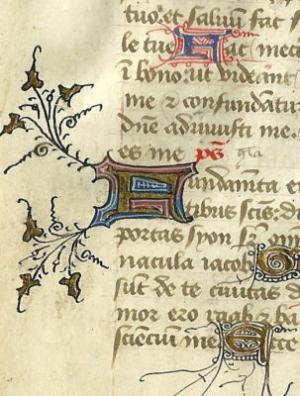 tuo: et saluū fac f
le tue Fac mec
ī bono: ut videant
me ⁊ confundātu
dñe adiuuisti me
es me ps gla
Fundamēta e
tibus scīs: di
portas syon sr̄ om̄
nacula iacob G
sūt de te ciuitas d
mor ero raab ⁊ ba
sciēciū me Ecce